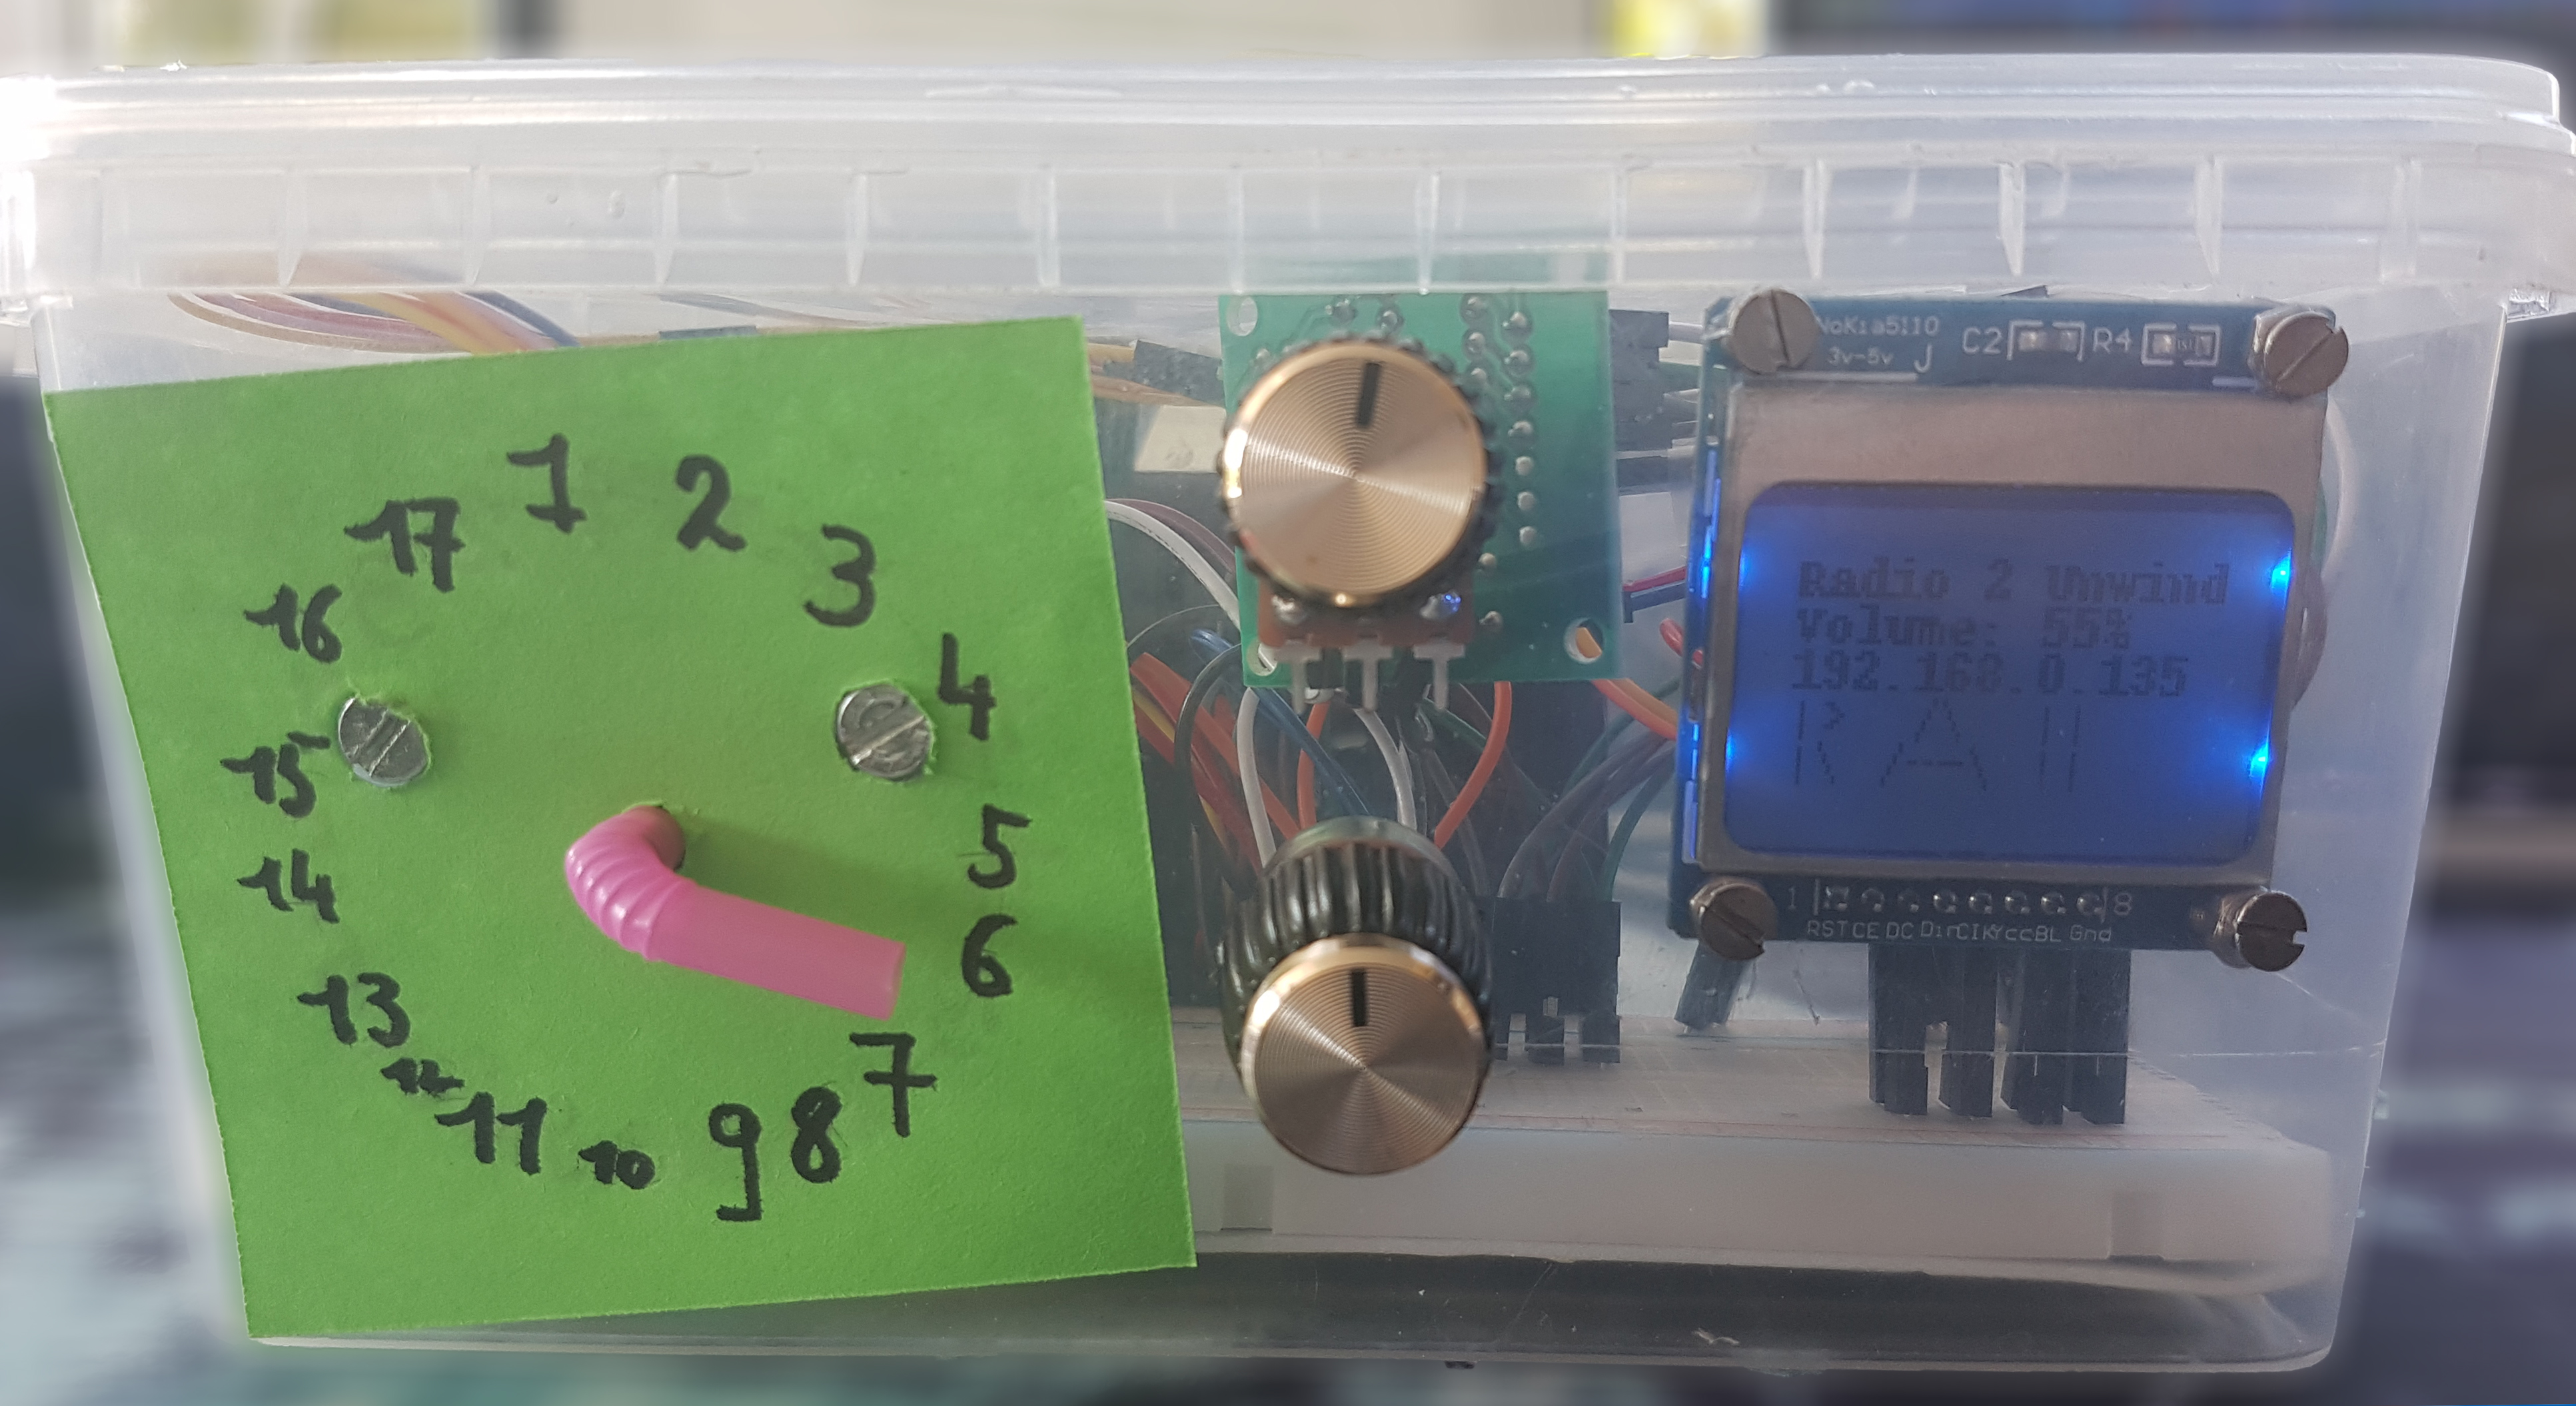 1
2
3
4
5
6
7
8
9
10
11
12
13
14
15
16
17
NoKia5110
3v-5v J
C2 R4
Radio 2 Unwind
Volume: 55%
192.168.0.135
1 8
RST CE DC Din Clk Vcc BL Gnd